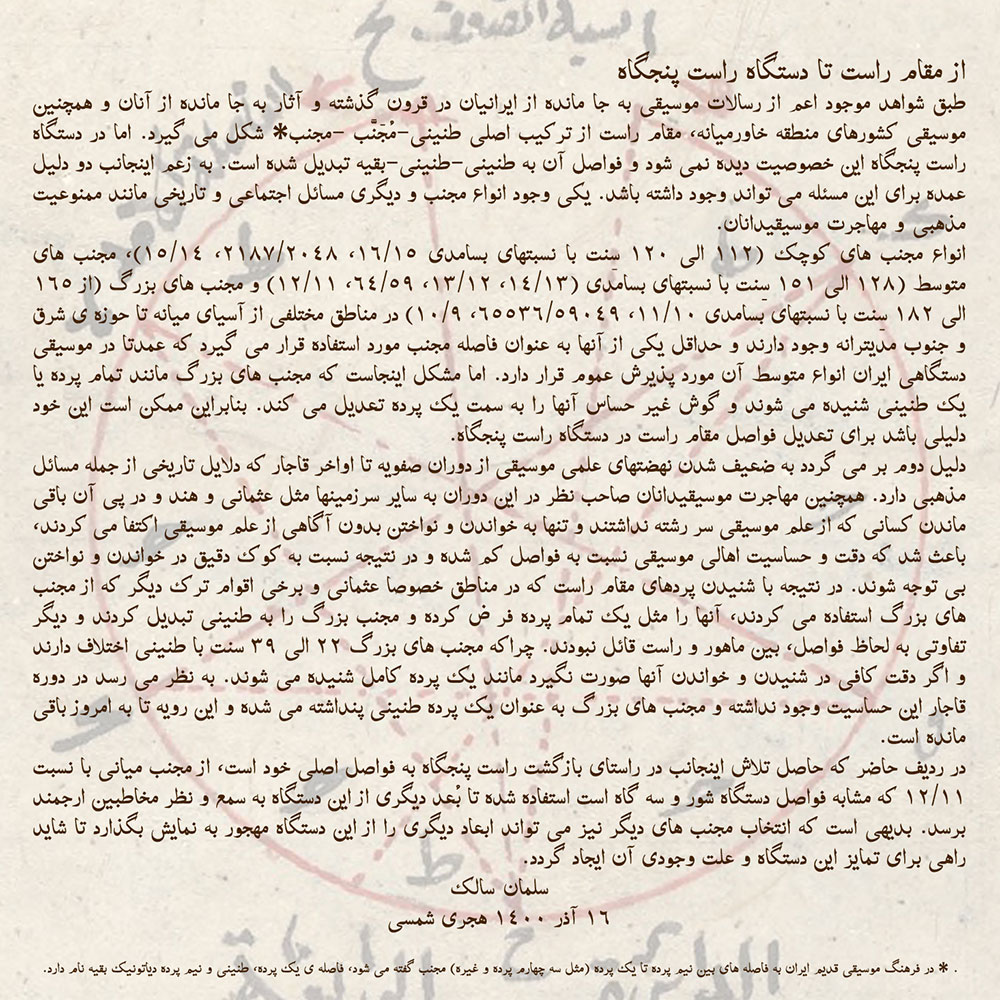 از مقام راست تا دستگاه راست پنجگاه
طبق شواهد موجود اعم از رسالات موسیقی به جا مانده از ایرانیان در قرون گذشته و آثار به جا مانده از آنان و همچنین
موسیقی کشورهای منطقه خاورمیانه، مقام راست از ترکیب اصلی طنینی-مُجَنَّب -مجنب* شکل می گیرد. اما در دستگاه
راست پنجگاه این خصوصیت دیده نمی شود و فواصل آن به طنینی-طنینی-بقیه تبدیل شده است. به زعم اینجانب دو دلیل
عمده برای این مسئله می تواند وجود داشته باشد. یکی وجود انواع مجنب و دیگری مسائل اجتماعی و تاریخی مانند ممنوعیت
مذهبی و مهاجرت موسیقیدانان.
انواع مجنب های کوچک (۱۱۲ الی ۱۲۰ سِنت با نسبتهای بسامدی ۱۶/۱۵، ۲۱۸۷/۲۰۴۸، ۱۵/۱۴)، مجنب های
متوسط (۱۲۸ الی ۱۵۱ سِنت با نسبتهای بسامدی (۱۴/۱۳، ۱۳/۱۲، ۶۴/۵۹، ۱۲/۱۱) و مجنب های بزرگ (از ۱۶۵
الی ۱۸۲ سِنت با نسبتهای بسامدی ۱۱/۱۰، ۶۵۵۳۶/۵۹۰۴۹، ۱۰/۹) در مناطق مختلفی از آسیای میانه تا حوزه ی شرق
و جنوب مدیترانه وجود دارند و حداقل یکی از آنها به عنوان فاصله مجنب مورد استفاده قرار می گیرد که عمدتا در موسیقی
دستگاهی ایران انواع متوسط آن مورد پذیرش عموم قرار دارد. اما مشکل اینجاست که مجنب های بزرگ مانند تمام پرده یا
یک طنینی شنیده می شوند و گوش غیر حساس آنها را به سمت یک پرده تعدیل می کند. بنابراین ممکن است این خود
دلیلی باشد برای تعدیل فواصل مقام راست در دستگاه راست پنجگاه.
دلیل دوم بر می گردد به ضعیف شدن نهضتهای علمی موسیقی از دوران صفویه تا اواخر قاجار که دلایل تاریخی از جمله مسائل
مذهبی دارد. همچنین مهاجرت موسیقیدانان صاحب نظر در این دوران به سایر سرزمینها مثل عثمانی و هند و در پی آن باقی
ماندن کسانی که از علم موسیقی سر رشته نداشتند و تنها به خواندن و نواختن بدون آگاهی از علم موسیقی اکتفا می کردند،
باعث شد که دقت و حساسیت اهالی موسیقی نسبت به فواصل کم شده و در نتیجه نسبت به کوک دقیق در خواندن و نواختن
بی توجه شوند. در نتیجه با شنیدن پردهای مقام راست که در مناطق خصوصا عثمانی و برخی اقوام ترک دیگر که از مجنب
های بزرگ استفاده می کردند، آنها را مثل یک تمام پرده فر ض کرده و مجنب بزرگ را به طنینی تبدیل کردند و دیگر
تفاوتی به لحاظ فواصل، بین ماهور و راست قائل نبودند. چراکه مجنب های بزرگ ۲۲ الی ۳۹ سنت با طنینی اختلاف دارند
و اگر دقت کافی در شنیدن و خواندن آنها صورت نگیرد مانند یک پرده کامل شنیده می شوند. به نظر می رسد در دوره
قاجار این حساسیت وجود نداشته و مجنب های بزرگ به عنوان یک پرده طنینی پنداشته می شده و این رویه تا به امروز باقی
مانده است.
در ردیف حاضر که حاصل تلاش اینجانب در راستای بازگشت راست پنجگاه به فواصل اصلی خود است، از مجنب میانی با نسبت
۱۲/۱۱ که مشابه فواصل دستگاه شور و سه گاه است استفاده شده تا بُعد دیگری از این دستگاه به سمع و نظر مخاطبین ارجمند
برسد. بدیهی است که انتخاب مجنب های دیگر نیز می تواند ابعاد دیگری را از این دستگاه مهجور به نمایش بگذارد تا شاید
راهی برای تمایز این دستگاه و علت وجودی آن ایجاد گردد.
سلمان سالک
۱۶ آذر ۱۴۰۰ هجری شمسی
. * در فرهنگ موسیقی قدیم ایران به فاصله های بین نیم پرده تا یک پرده (مثل سه چهارم پرده و غیره) مجنب گفته می شود، فاصله ی یک پرده، طنینی و نیم پرده دیاتونیک بقیه نام دارد.